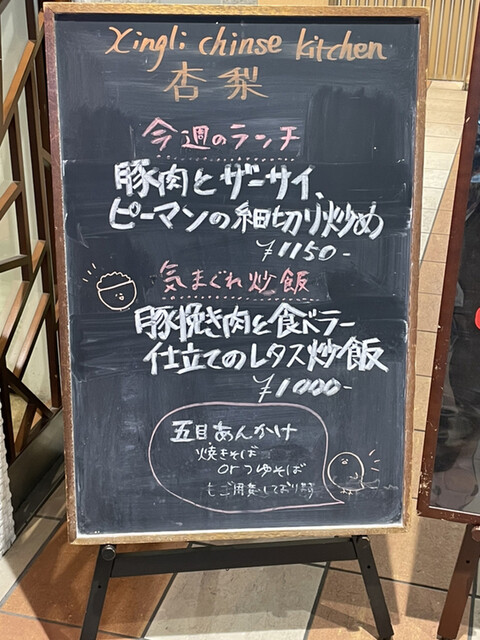 Xingli chinse kitchen
杏梨
今週のランチ
豚肉とザーサイ、
ピーマンの細切り炒め
¥1150-
気まぐれ炒飯
豚挽き肉と食べラー
仕立てのレタス炒飯
¥1000-
五目あんかけ
焼きそば
orつゆそば
もご用意しております